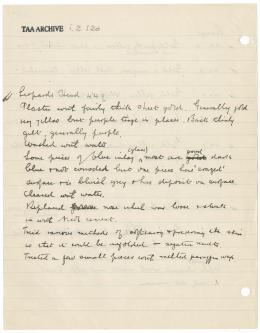 TAA ARCHIVE i.2.520
Leopards Head 44
Plaster with fairly thick sheet gold. Generally gold
very yellow but purple tinge in places. Back thinly
gilt, generally purple.
Washed with water.
Some pieces of blue inlay (glass), most are good dark
blue & not corroded but one piece
surface is bluish grey & has deposit on surface
Cleaned with water.
Replaced nose which was loose & stuck
in with cement.
Tried various methods of softening & freeing the skin
so that it could be unfolded – negative results
Treated a few small pieces with melted paraffin wax